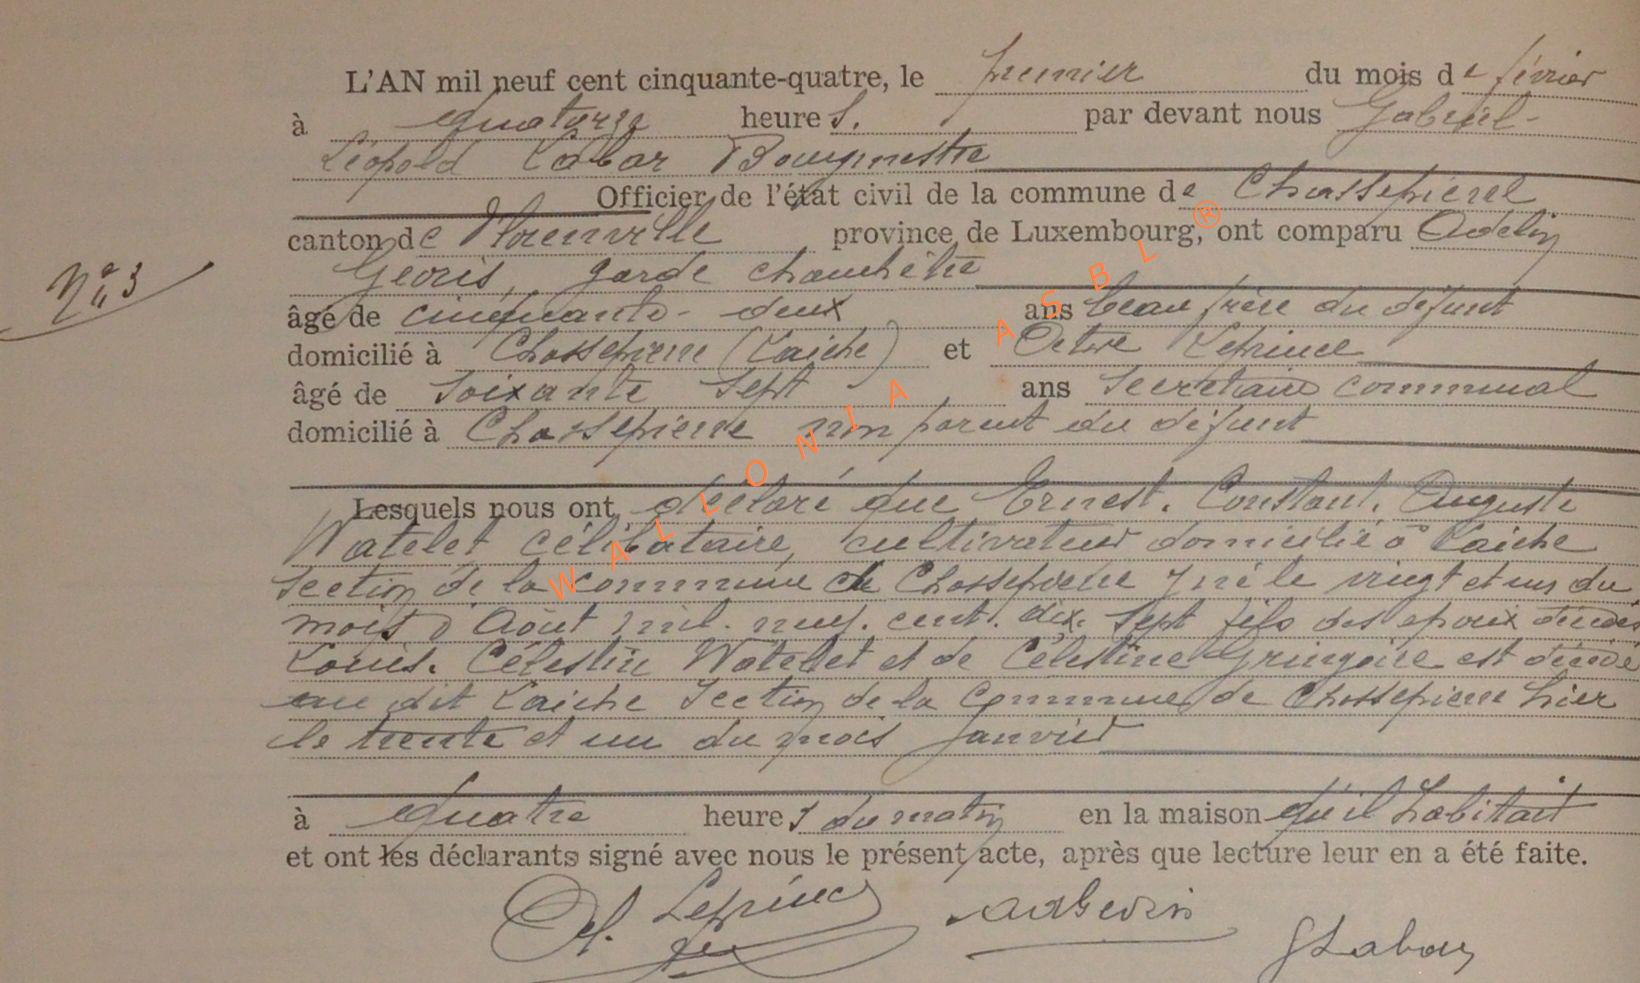 L'AN mil neuf cent cinquante-quatre, le premier du mois de février
à quatorze heures. par devant nous Gabriel-
Léopold Labar Bourgmestre
Officier de l'état civil de la commune de Chassepierre
canton de Florenville province de Luxembourg, ont comparu Adelin
Georis, garde champêtre
N° 3
âgé de cinquante-deux ans beau frère du défunt
domicilié à Chassepierre (Laiche) et Octave Leprince
âgé de soixante sept ans secrétaire communal
domicilié à Chassepierre non parent du défunt
Lesquels nous ont déclaré que Ernest. Constant. Auguste
Watelet célibataire, cultivateur domicilié à Laiche
section de la commune de Chassepierre y né le vingt et un du
mois d'Août mil. neuf. cent. dix. sept fils des époux décédés
Louis. Célestin Watelet et de Célestine Gringoire est décédé
au dit Laiche section de la commune de Chassepierre hier
le trente et un du mois janvier
à quatre heures du matin en la maison qu'il habitait
et ont les déclarants signé avec nous le présent acte, après que lecture leur en a été faite.
O. Leprince AdGeoris
GLabar
WALLONIA ASBL ®